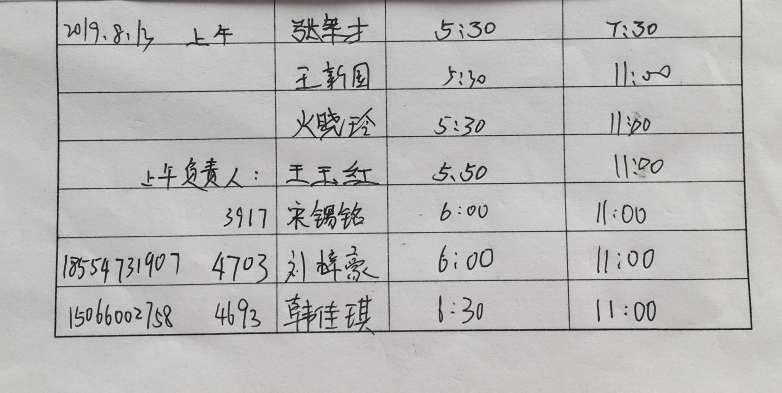 2019.8.13 上午 张举才 5:30 7:30
王新国 5:30 11:00
火晓玲 5:30 11:00
上午负责人: 王玉红 5:50 11:00
3917 宋锡铭 6:00 11:00
18554731907 4703 刘梓豪 6:00 11:00
15066002758 4693 韩佳琪 6:30 11:00